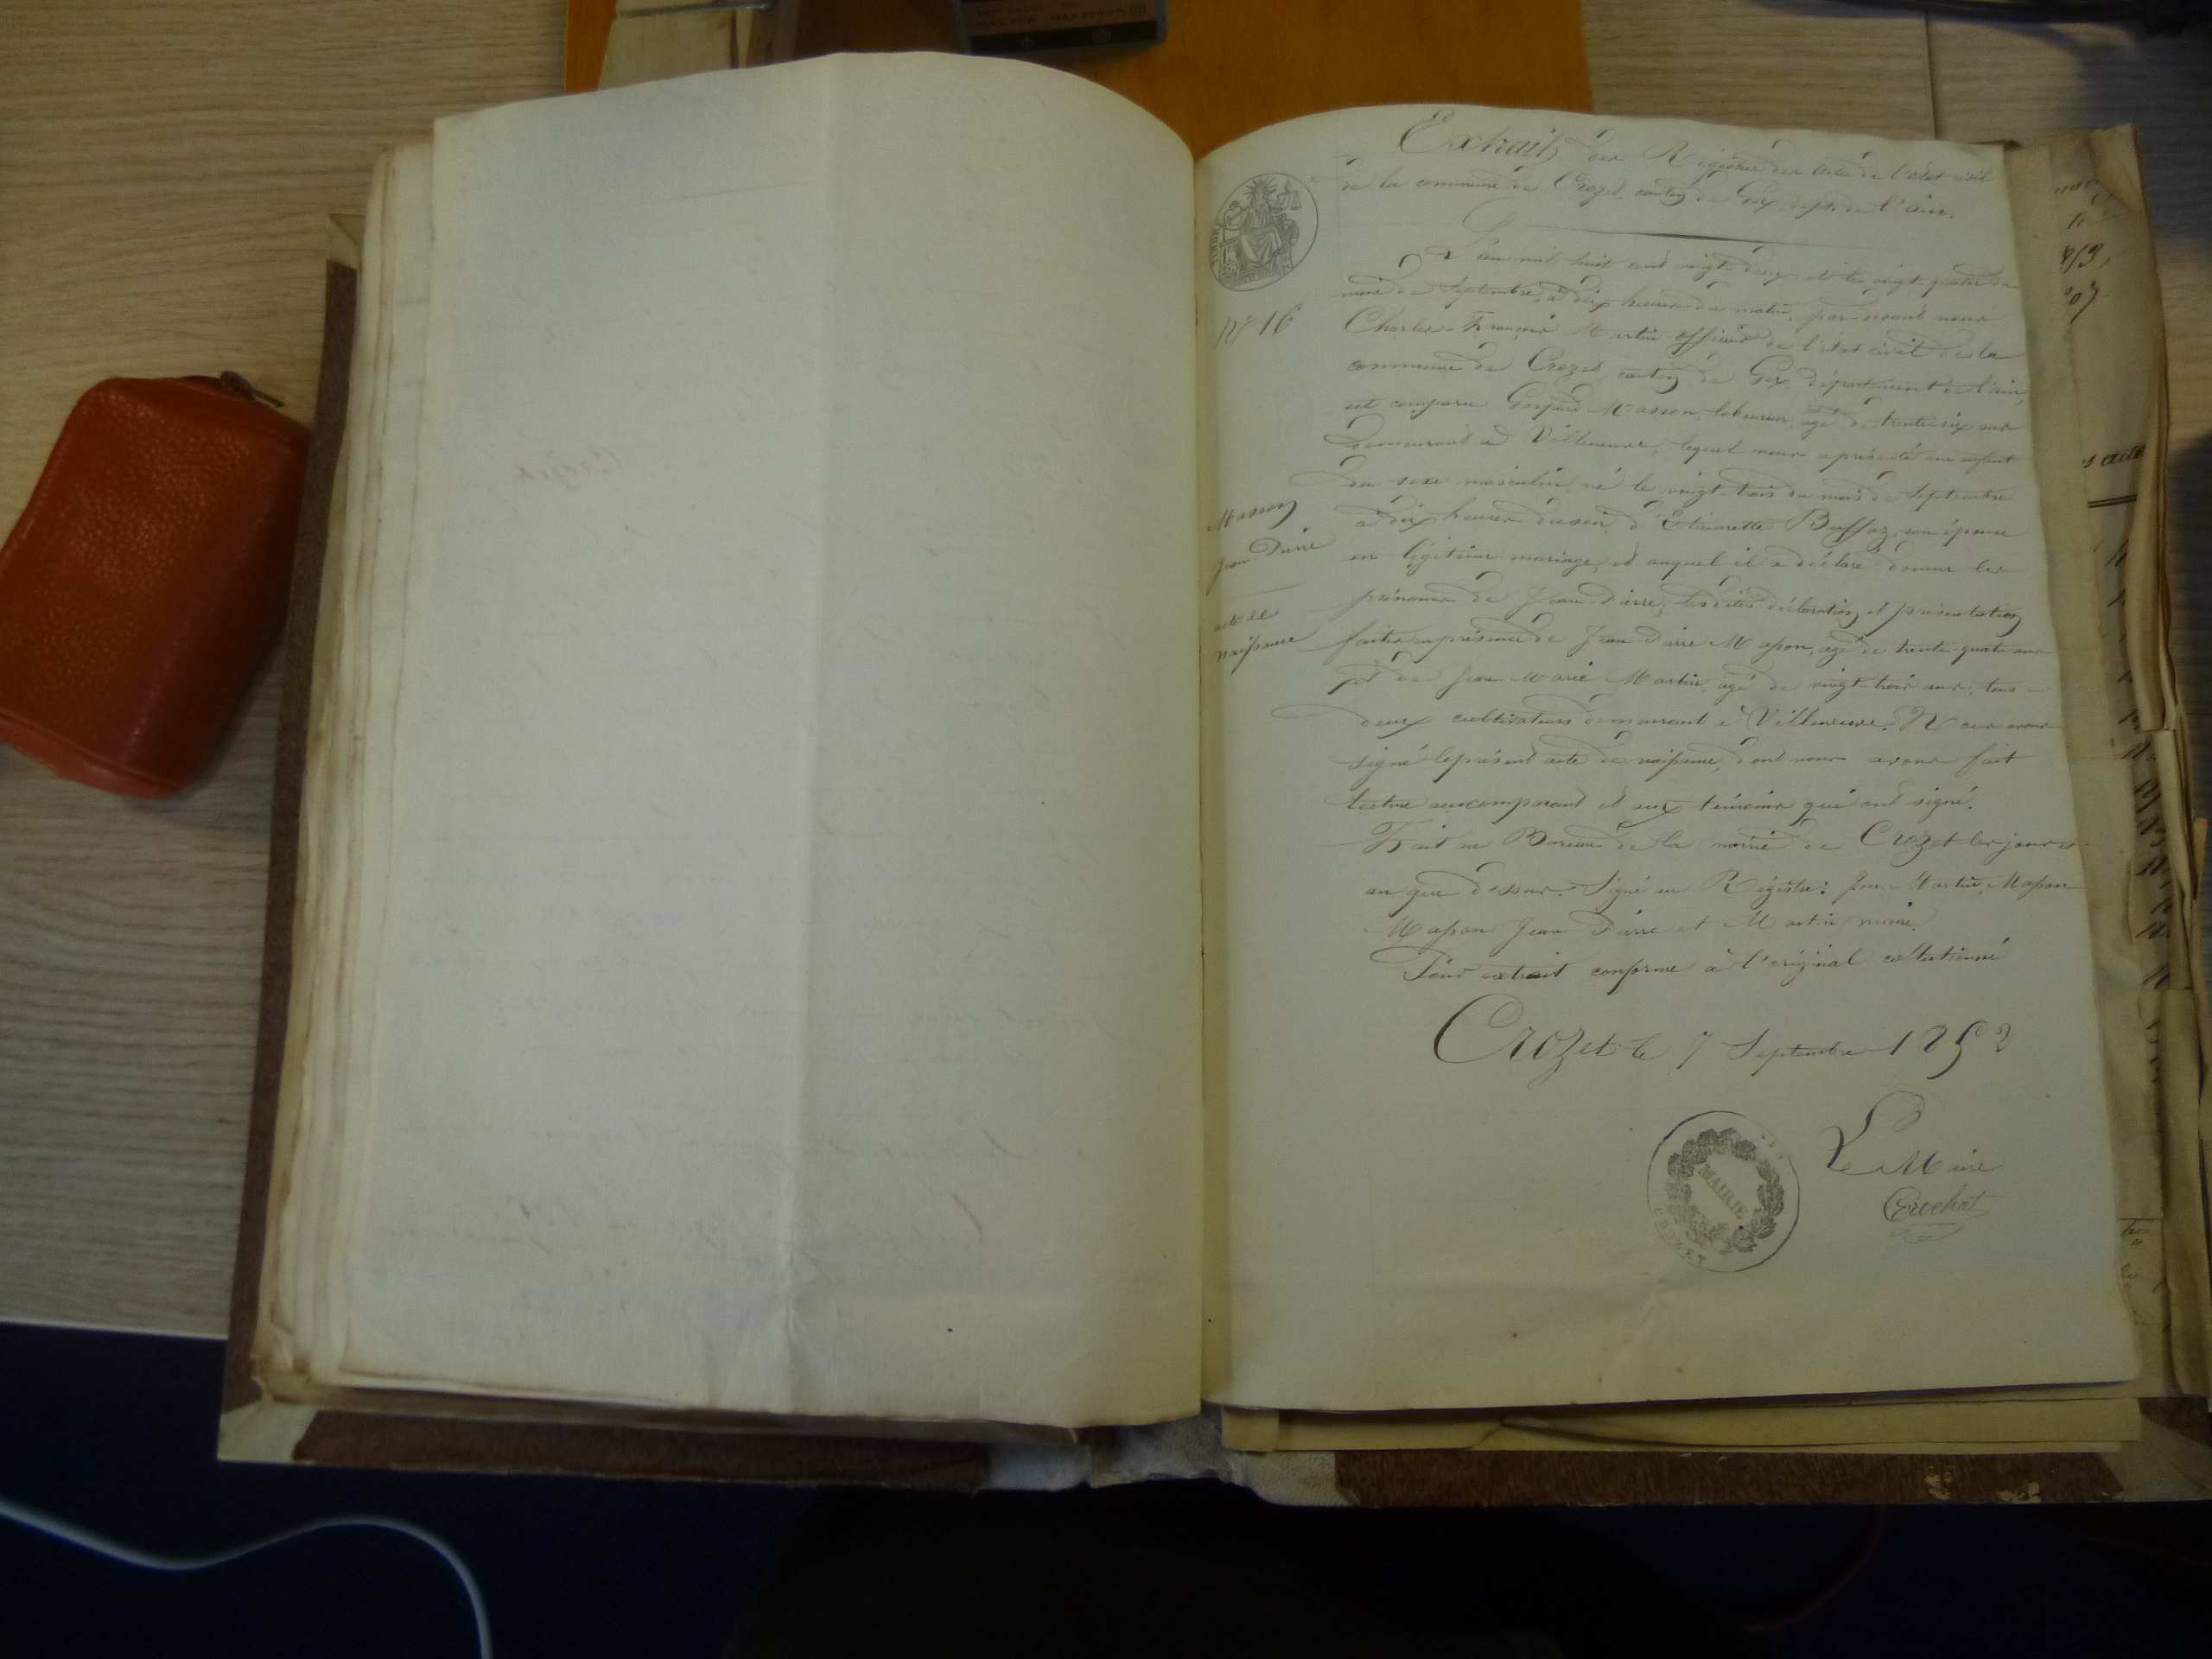 Extrait des Registres des Actes de l'état civil
de la commune de Crozet, canton de Gex, dépt. de l'ain.
TIMBRE
L'an mil huit cent vingt deux et le vingt-quatre du
mois de Septembre, à dix heures du matin, par-devant nous
N° 16
Charles-François Martin officier de l'état civil de la
commune de Crozet canton de Gex, département de l'ain,
est comparu Gaspard Masson, laboureur, agé de trente six ans
demeurant à Villeneuve, lequel nous a présenté un enfant
du sexe masculin né le vingt-trois du mois de Septembre
Masson
Jean-Pierre
acte de
naissance
à dix heures du soir, d'Etiennette Buffaz, son épouse
en légitime mariage, et auquel il a déclaré donner les
prénoms de Jean-Pierre; lesdites déclaration et présentation
faites en présence de Jean Pierre Masson, agé de trente-quatre ans
et de Jean-Marie Martin, agé de vingt-trois ans, tous
deux cultivateurs demeurant à Villeneuve. Nous avons
signé le présent acte de naissance, dont nous avons fait
lecture au comparant et aux témoins qui ont signé.
Fait au Bureau de la mairie de Crozet les jour et
an que dessus. Signé au Régistre: Martin, Masson
Masson Jean Pierre et Martin maire.
Pour extrait conforme à l'original collationné
Crozet le 7 Septembre 1852
Le Maire
MAIRIE
CROZET
s acte